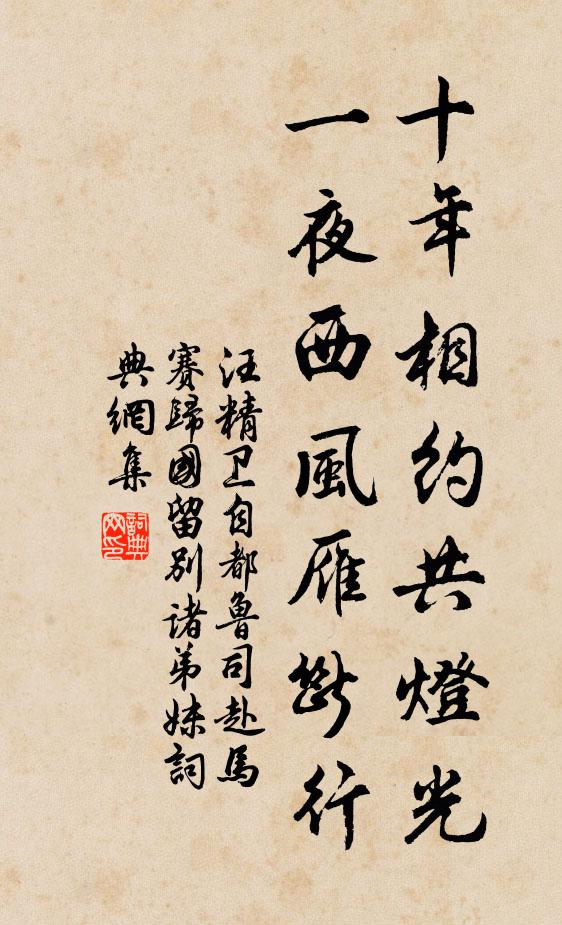 十年相約共燈光
一夜西風雁斷行
汪精卫自都魯司赴馬
賽歸國留別诸弟妹詞
典網集
詞典网印